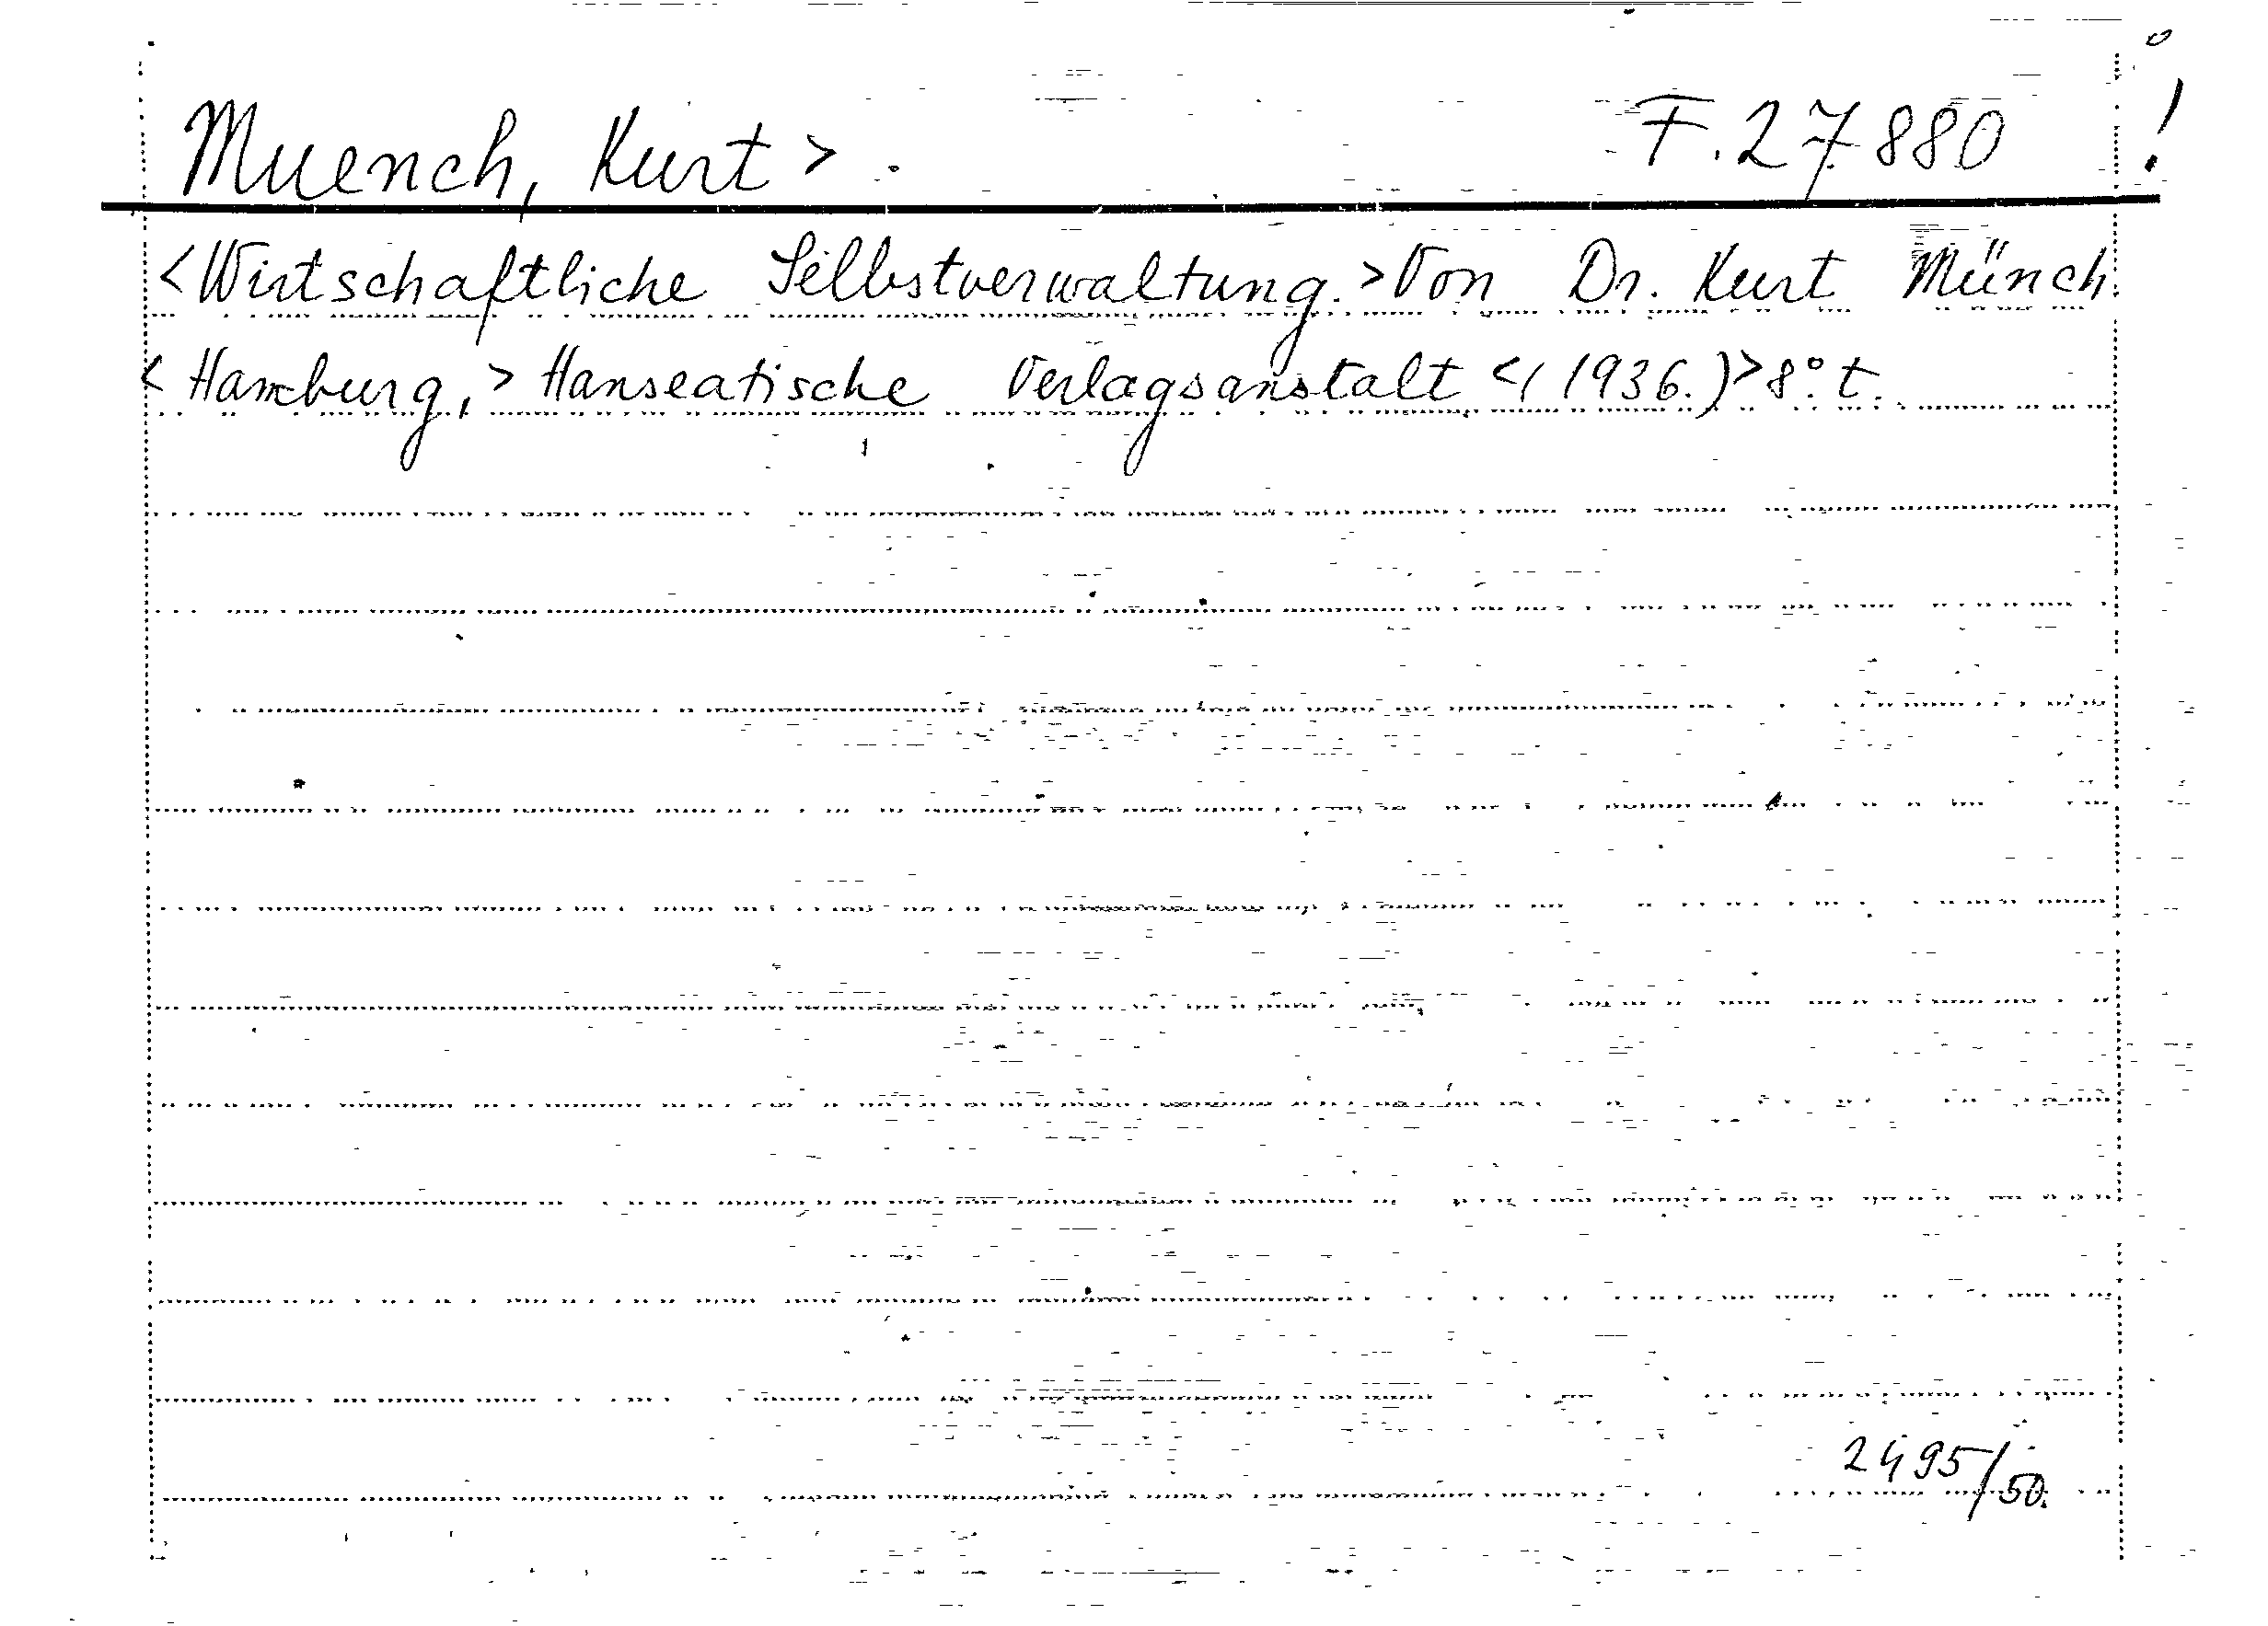 Muench, Kurt > . F. 27880 !
<Wirtschaftliche Selbstverwaltung.> Von Dr. Kurt Münch.
<Hamburg,> Hanseatische Verlagsanstalt <(1936.)> 8° t.
2495/50.